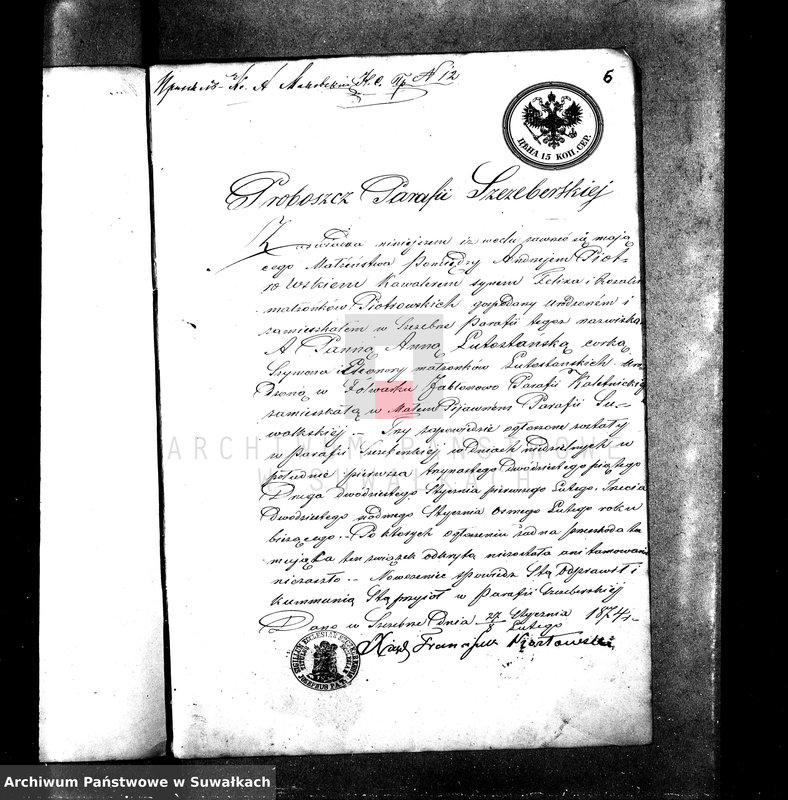 № 12
6
ЦѢНА 15 КОП. СЕР.
Proboszcz Parafii Szczeberskiej
Zaświadcza niniejszem iż wedle zawrzeć się mają
cego Małżeństwa pomiędzy Andrzejem Piotr
rowskiem Kawalerem synem Felixa i Rozalii
małżonków Piotrowskich gospodarzy urodzonem i
zamieszkałem w Szczebrze Parafii tegoż nazwiska
A Panną Anną Lutostańską córką
Szymona i Eleonory małżonków Lutostańskich uro
dzoną w Folwarku Jabłonowo Parafii Kaletnickiej
zamieszkałą w Małem Pijawnem Parafii Su-
walkskiej – Trzy zapowiedzie ogłoszone zostały
w parafii Szczeberskiej w dniach niedzielnych w
południe pierwsza trzynastego Dwódziestego piątego
Druga dwodziestego Stycznia pierwszego Lutego. Trzecia
Dwodziestego siódmego Stycznia Osmego Lutego roku
bieżącego. – Po których ogłoszeniu żadna przeszkoda ta
mująca ten związek odkrytą niezostała ani tamowanie
niezaszło. – Nowożeniec spowiedź Stą odprawił i
kummunią Stą przyjoł w parafii Szczeberskiej
Dano w Szczebrze Dnia 27/8 Stycznia/Lutego 1874 r.
Xiądz Franciszek
ARCHIWUM PAŃSTWOWE
W SUWAŁKACH
Archiwum Państwowe w Suwałkach